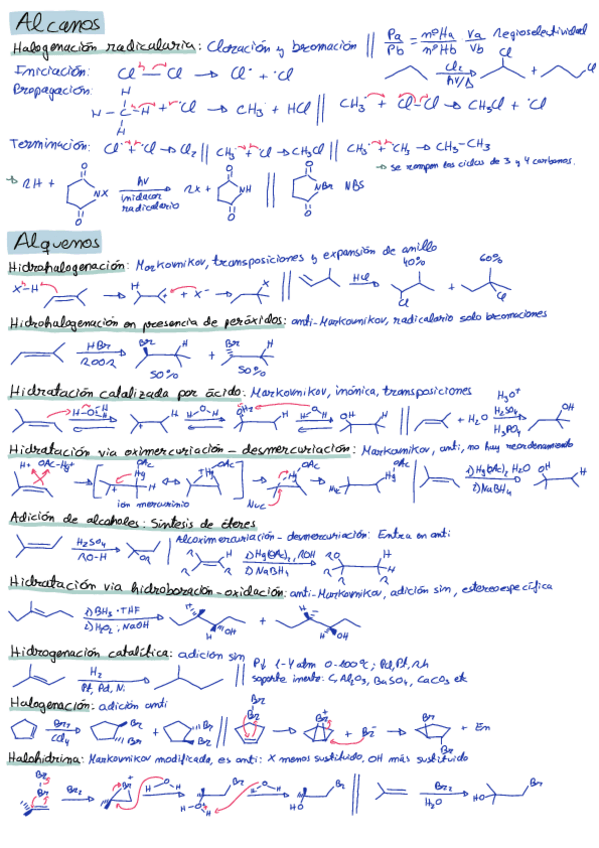 Alcanos
Halogenación radicalaria: Cloración y bromación || Pa/Pb = nºHa/nºHb Va/Vb regioselectividad
Iniciación: Cl—Cl → Cl· + ·Cl
Cl₂ hν/Δ Cl Cl
Propagación: H
H—C—H + ·Cl → CH₃· + HCl || CH₃· + Cl—Cl → CH₃Cl + ·Cl
H
Terminación: Cl· + ·Cl → Cl₂ || CH₃· + ·Cl → CH₃Cl || CH₃· + ·CH₃ → CH₃—CH₃
→ se rompen los ciclos de 3 y 4 carbonos.
→ RH + O NX O hν iniciador radicalario RX + O NH O || O NBr O NBS
Alquenos
Hidrohalogenación: Markovnikov, transposiciones y expansión de anillo
X—H → H + + X⁻ → X H || HCl 40% Cl + 60% Cl
Hidrohalogenación en presencia de peróxidos: anti-Markovnikov, radicalario solo bromaciones
HBr ROOR Br H 50% + Br H 50%
Hidratación catalizada por ácido: Markovnikov, iónica, transposiciones
H₃O⁺ H₂SO₄ H₃PO₄ + H₂O OH H
Hidratación via oximercuriación – desmercuriación: Markovnikov, anti, no hay reordenamiento
H⁺ OAc-Hg⁺ OAc Hg ion mercurinio Hg OAc Nuc Hg OAc || 1) Hg(OAc)₂ H₂O 2) NaBH₄ OH H
Adición de alcoholes: Síntesis de éteres
H₂SO₄ RO-H OR || Alcoximercuriación – desmercuriación: Entra en anti
R H R R 1) Hg(OAc)₂, ROH 2) NaBH₄ RO H H R R
Hidratación via hidroboración-oxidación: anti-Markovnikov, adición sin, estereoespecífica
1) BH₃·THF 2) H₂O₂, NaOH H H OH + H H OH
Hidrogenación catalítica: adición sin
H₂ Pt, Pd, Ni || P↓ 1-4 atm 0-100ºC; Pd, Pt, Rh
soporte inerte: C, Al₂O₃, BaSO₄, CaCO₃ etc
Halogenación: adición anti
Br₂ CCl₄ Br Br + Br Br || Br Br → Br⁺ + Br⁻ → Br Br + En
Halohidrina: Markovnikov modificada, es anti: X menos sustituido, OH más sustituido
Br Br Br₂ Br⁺ H O H Br H—O—H H O H Br HO || Br₂ H₂O HO Br